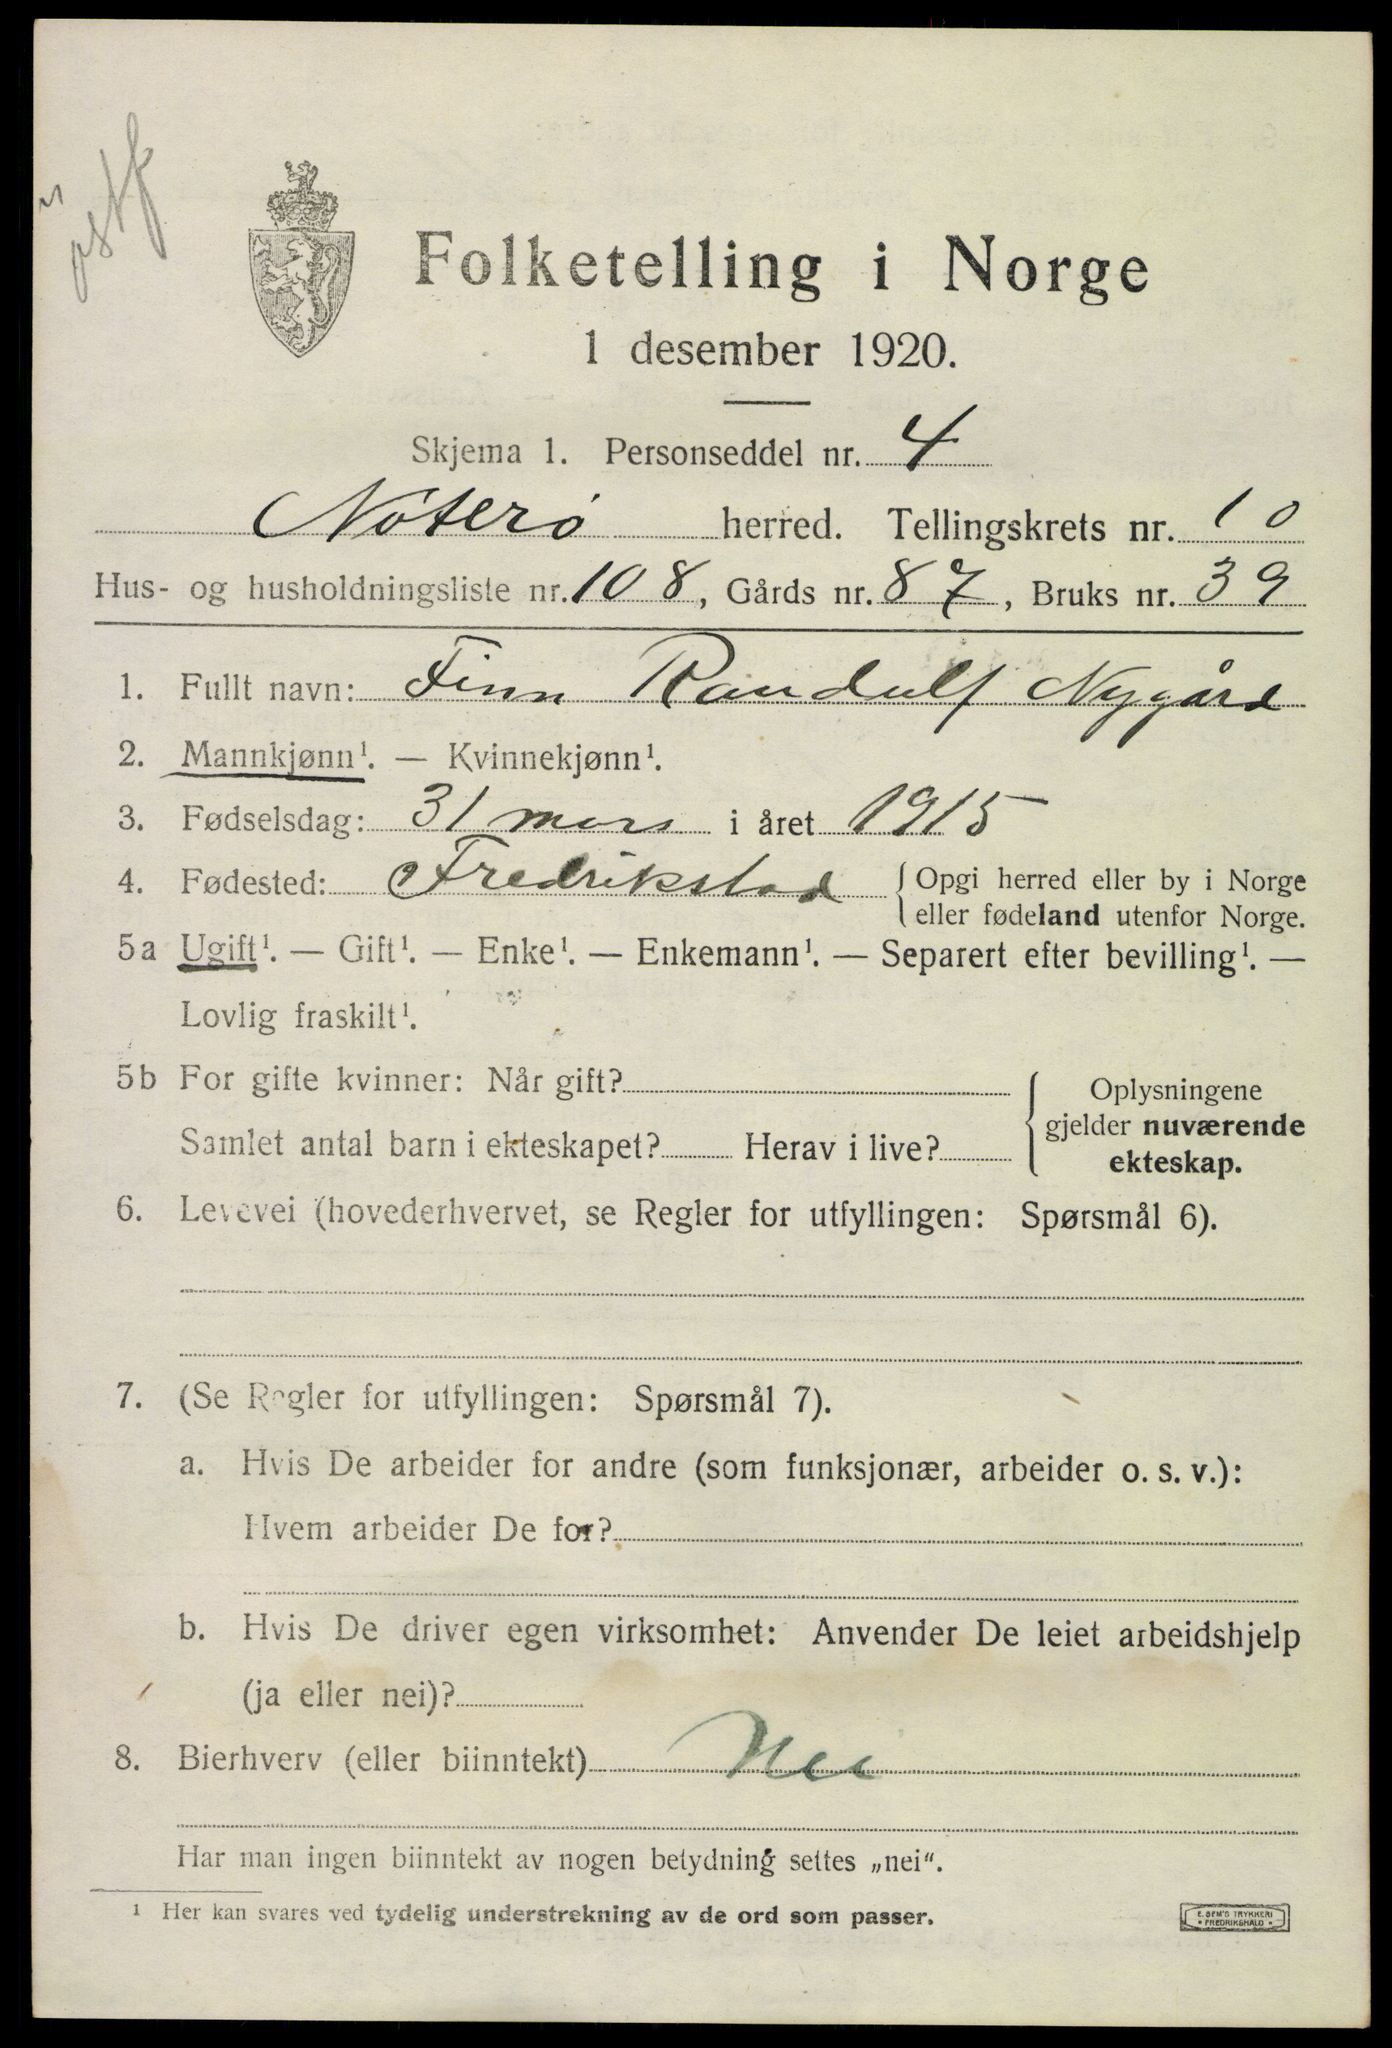 østf
Folketelling i Norge
1 desember 1920.
Skjema 1. Personseddel nr. 4
Nøterø herred. Tellingskrets nr. 10
Hus- og husholdningsliste nr. 108, Gårds nr. 87, Bruks nr. 39
1. Fullt navn: Finn Randulf Nygård
2. Mannkjønn¹. — Kvinnekjønn¹.
3. Fødselsdag: 31 mars i året 1915
4. Fødested: Fredrikstad { Opgi herred eller by i Norge
eller fødeland utenfor Norge.
5a Ugift¹. — Gift¹. — Enke¹. — Enkemann¹. — Separert efter bevilling¹. —
Lovlig fraskilt¹.
5b For gifte kvinner: Når gift?
Samlet antal barn i ekteskapet? Herav i live?
Oplysningene
gjelder nuværende
ekteskap.
6. Levevei (hovederhvervet, se Regler for utfyllingen: Spørsmål 6).
7. (Se Regler for utfyllingen: Spørsmål 7).
a. Hvis De arbeider for andre (som funksjonær, arbeider o. s. v.):
Hvem arbeider De for?
b. Hvis De driver egen virksomhet: Anvender De leiet arbeidshjelp
(ja eller nei)?
8. Bierhverv (eller biinntekt) Nei
Har man ingen biinntekt av nogen betydning settes „nei“.
¹ Her kan svares ved tydelig understrekning av de ord som passer.
E. SEM'S TRYKKERI
FREDRIKSHALD